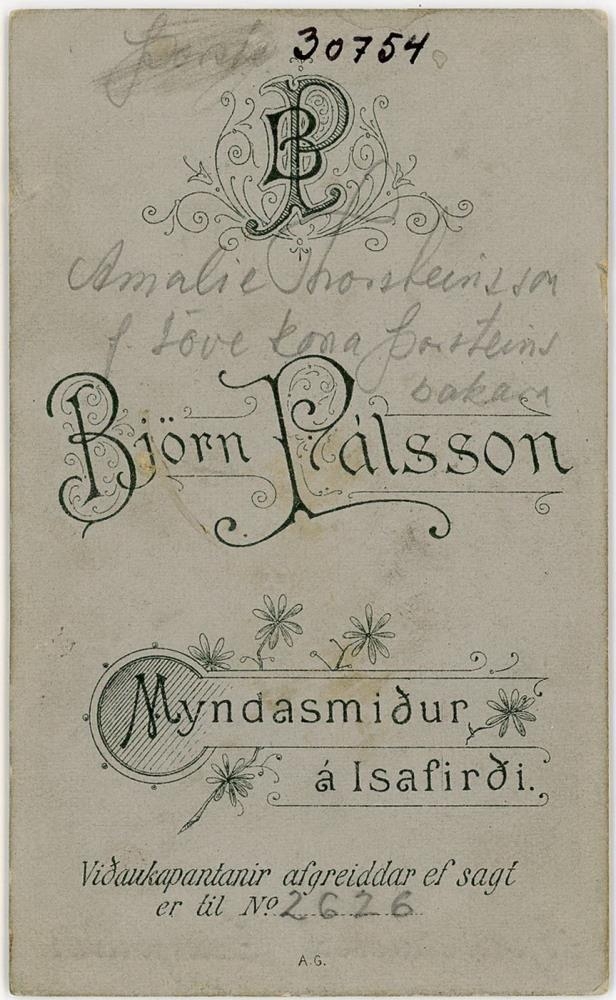 30754
BP
Amalie Thorsteinsson
f. Löve kona Þorsteins
bakara
Björn Pálsson
Myndasmiður
á Isafirði.
Viðaukapantanir afgreiddar ef sagt
er til Nº 2626
A.G.